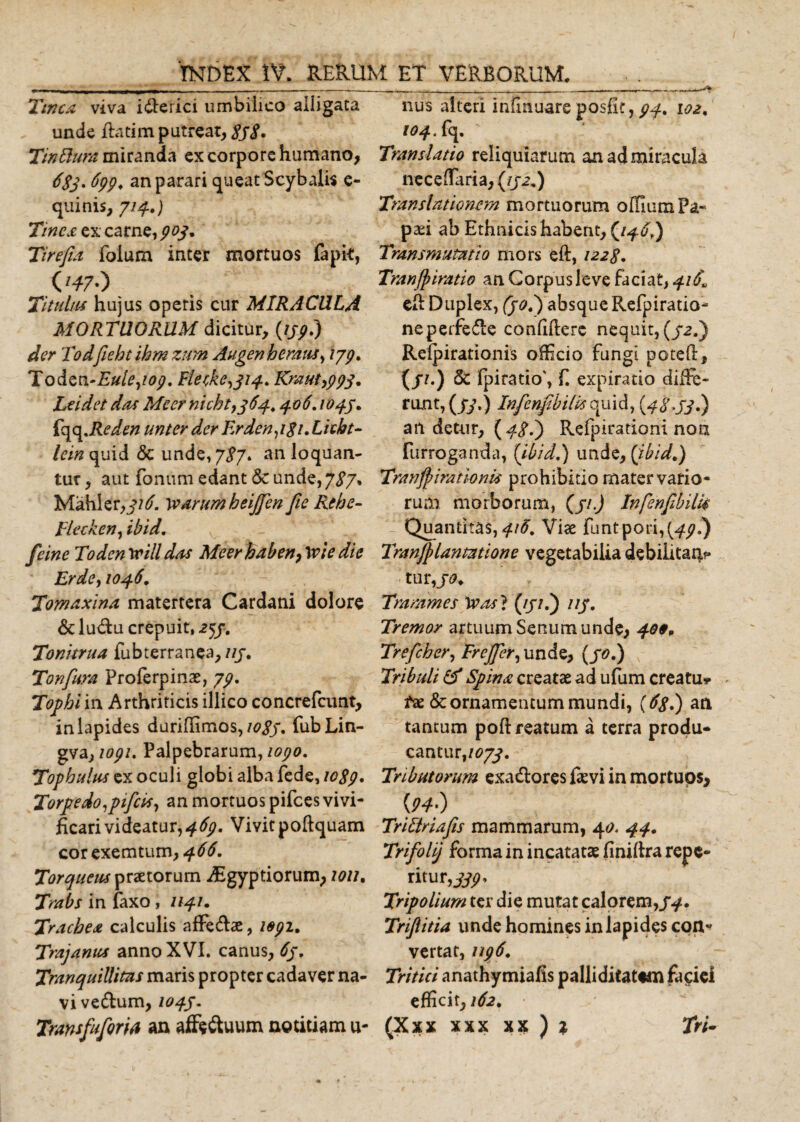 INDEX IV. RERUM ET VERBORUM.
Tinca viva icterici umbilico alligata
unde ſtatim putreat, 858.
Tinctura miranda ex corpore humano,
683. 699. an parari queat Scybalis e-
quinis, 714.)
Tineæ ex carne, 903.
Tireſia ſolum inter mortuos ſapit,
(147.)
Titulus hujus operis cur MIRACULA
MORTUORUM dicitur, (159.)
der Tod ſieht ihm zum Augen heraus, 179.
Toden-Eule, 109. Flecke, 314. Kraut, 993.
Leidet das Meer nicht, 364. 406. 1045.
ſqq. Reden unter der Erden, 181. Licht-
lein quid & unde, 787. an loquan-
tur, aut ſonum edant & unde, 787.
Mähler, 316. Warum heiſſen ſie Rehe-
Flecken, ibid.
ſeine Toden will das Meer haben, wie die
Erde, 1046.
Tomaxina matertera Cardani dolore
& luctu crepuit, 255.
Tonitrua ſubterranea, 115.
Tonſura Proſerpinæ, 79.
Tophi in Arthriticis illico concreſcunt,
in lapides duriſſimos, 1085. ſub Lin-
gva, 1091. Palpebrarum, 1090.
Tophulus ex oculi globi alba ſede, 1089.
Torpedo, piſcis, an mortuos piſces vivi-
ficari videatur, 469. Vivit poſtquam
cor exemtum, 466.
Torqueus prætorum Ægyptiorum, 1011.
Trabs in ſaxo, 1141.
Tracheæ calculis affectæ, 1092.
Trajanus anno XVI. canus, 65.
Tranquillitas maris propter cadaver na-
vi vectum, 1045.
Transfuſoria an affectuum notitiam u-
nus alteri inſinuare posſit, 94. 102.
104. ſq.
Translatio reliquiarum an ad miracula
neceſſaria, (152.)
Translationem mortuorum oſſium Pa-
pæi ab Ethnicis habent, (146.)
Transmutatio mors eſt, 1228.
Tranſpiratio an Corpus leve faciat, 416.
eſt Duplex, (50.) absque Reſpiratio-
ne perfecte conſiſtere nequit, (52.)
Reſpirationis officio fungi poteſt,
(51.) & ſpiratio', ſ. expiratio diffe-
runt, (53.) Inſenſibilis quid, (48. 53.)
an detur, (48.) Reſpirationi non
ſurroganda, (ibid.) unde, (ibid.)
Tranſpirationis prohibitio mater vario-
rum morborum, (51.) Inſenſibilis
Quantitäs, 416. Viæ ſunt pori, (49.)
Tranſplantatione vegetabilia debilitan-
tur, 50.
Trarames was? (151.) 115.
Tremor artuum Senum unde, 400.
Treſcher, Freſſer, unde, (50.)
Tribuli & Spinæ creatæ ad uſum creatu-
ræ & ornamentum mundi, (68.) an
tantum poſt reatum à terra produ-
cantur, 1073.
Tributorum exactores ſævi in mortuos,
(94.)
Trictriaſis mammarum, 40. 44.
Trifolij forma in incatatæ ſiniſtra repe-
ritur, 339.
Tripolium ter die mutat calorem, 54.
Triſtitia unde homines in lapides con-
vertat, 1196.
Tritici anathymiaſis palliditatem faciei
efficit, 162.
(Xxx xxx xx) 2 Tri-